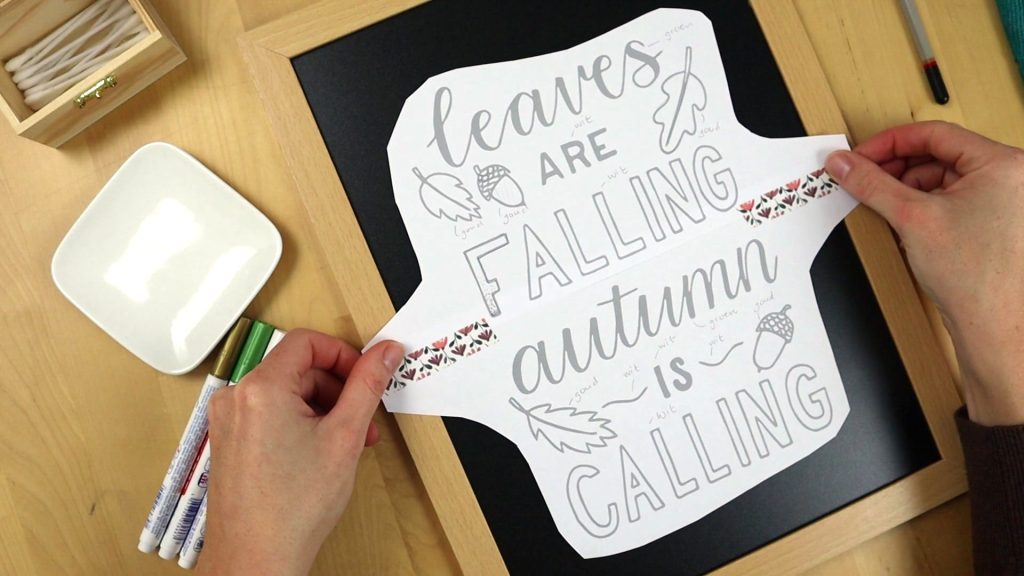 leaves
groen
wit
ARE
goud
wit
goud
goud
FALLING
autumn
goud
groen
wit
wit
wit
goud
IS
wit
CALLING